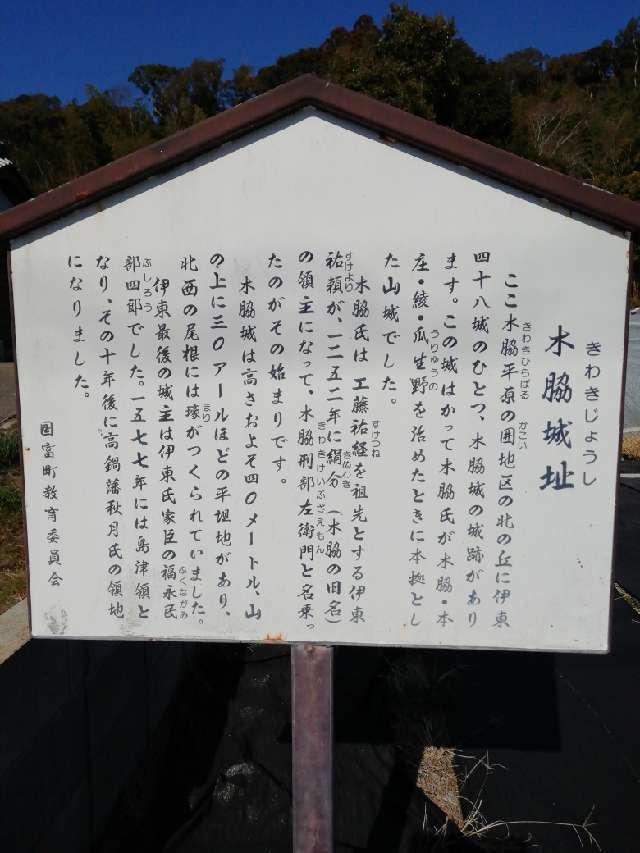 きわきじょうし
木脇城址
ここ木脇平原の囲地区の北の丘に伊東
四十八城のひとつ、木脇城の城跡があり
ます。この城はかつて木脇氏が木脇・本
庄・綾・瓜生野を治めたときに本拠とし
た山城でした。
木脇氏は工藤祐経を祖先とする伊東
祐頼が、一二五二年に絹分（木脇の旧名）
の領主になって、木脇刑部左衛門と名乗っ
たのがその始まりです。
木脇城は高さおよそ四〇メートル、山
の上に三〇アールほどの平坦地があり、
北西の尾根には壕がつくられていました。
伊東最後の城主は伊東氏家臣の福永民
部四郎でした。一五七七年には島津領と
なり、その十年後に高鍋藩秋月氏の領地
になりました。
国富町教育委員会